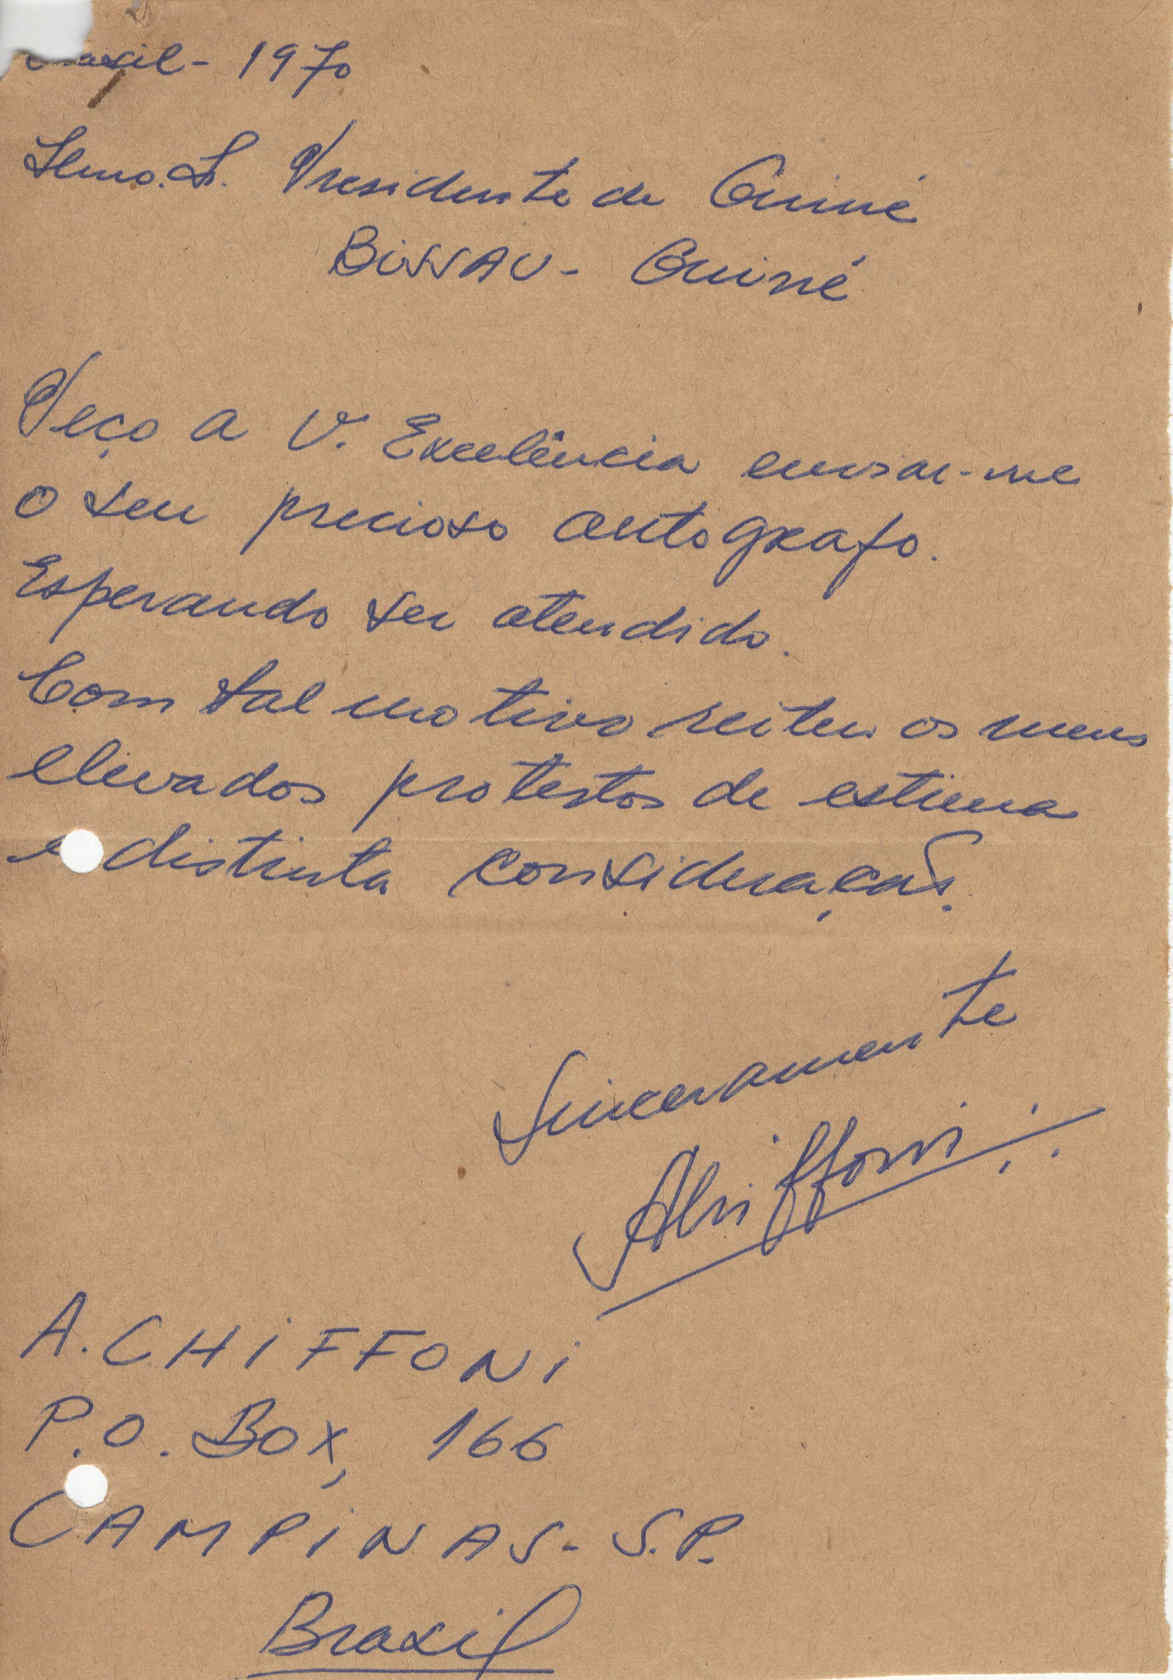 Brasil - 1970
Ilmo. Sr. Presidente da Guiné
BISSAU - Guiné
Peço a V. Excelência enviar-me
o seu precioso autografo.
Esperando ser atendido.
Com tal motivo reitero os meus
elevados protestos de estima
e distinta consideração.
Sinceramente
AChiffoni
A. CHIFFONI
P.O. BOX, 166
CAMPINAS - S.P.
Brasil